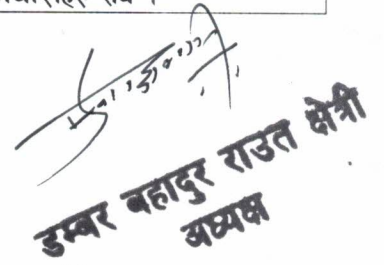 डम्बर बहादुर राउत क्षेत्री
अध्यक्ष